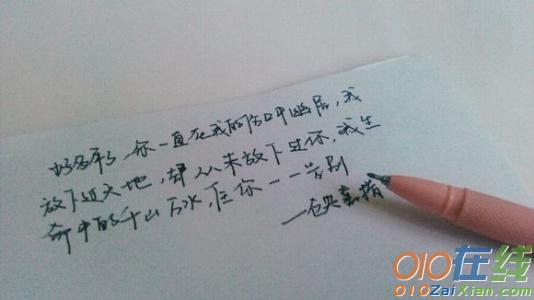 好多年了,你一直在我的伤口中幽居,我
放下过天地,却从未放下过你,我生
命中的千山万水,任你一一告别
——仓央嘉措
010在线
010ZaiXian.com